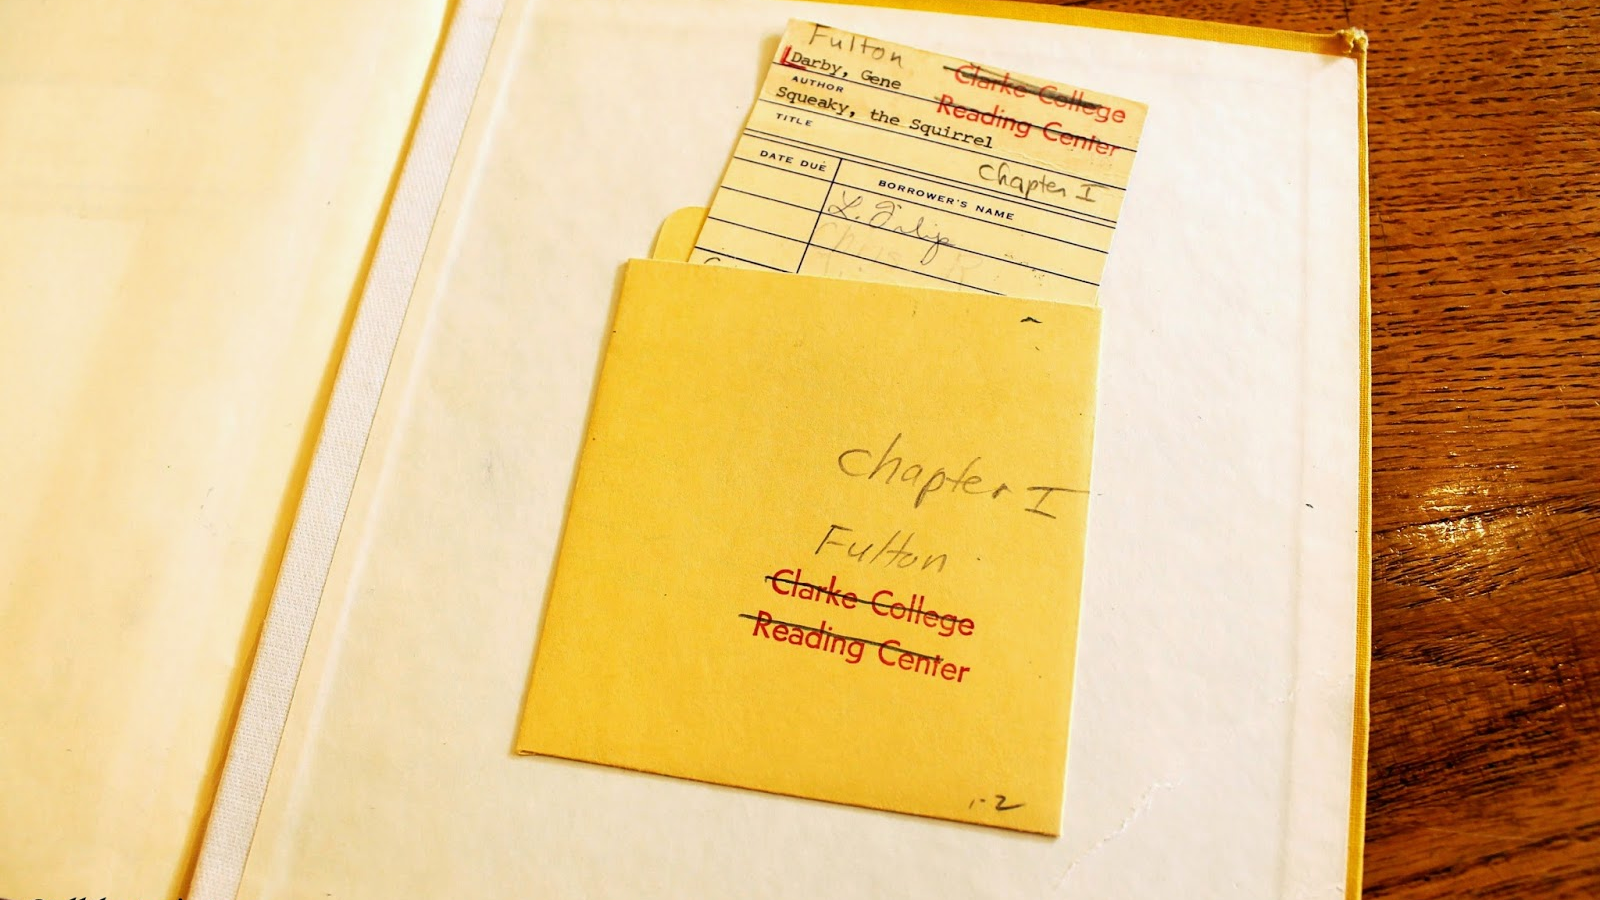 Fulton
Darby, Gene
Clarke College
AUTHOR
Reading Center
Squeaky, the Squirrel
TITLE
Chapter I
DATE DUE
BORROWER'S NAME
Chapter I
Fulton
Clarke College
Reading Center
1-2